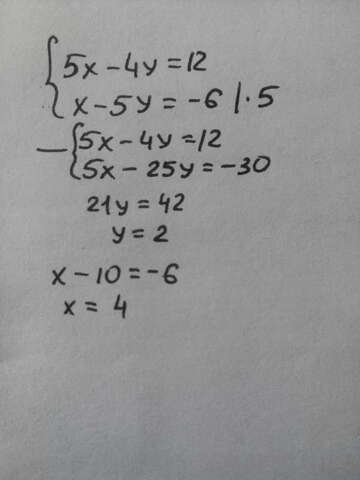 5x - 4y = 12
x - 5y = -6 | · 5
— 5x - 4y = 12
5x - 25y = -30
21y = 42
y = 2
x - 10 = -6
x = 4